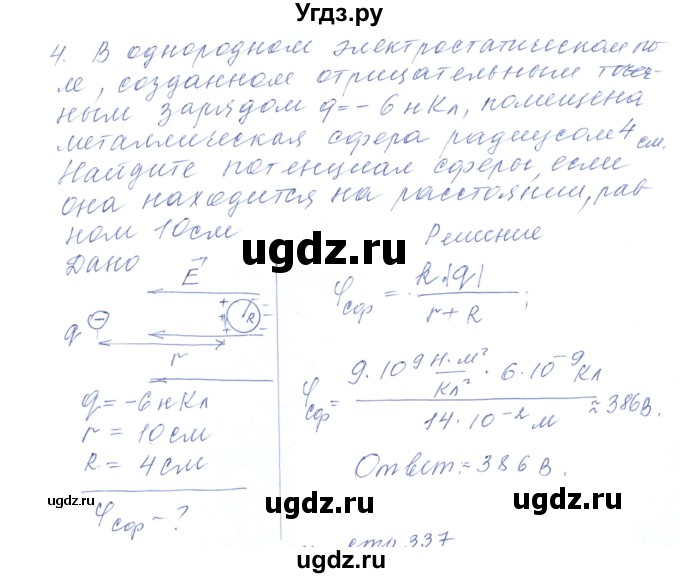 Угдз.ру
4. В однородном электростатическом по
ле, созданном отрицательным точеч-
ным зарядом q=-6нКл, помещена
металлическая сфера радиусом 4 см.
Найдите потенциал сферы, если
она находится на расстоянии, рав
ном 10см
Дано
Решение
E
q
R
r
q=-6нКл
r = 10см
R = 4см
φсф - ?
φсф = k|q| / r+R ;
φсф = 9·10⁹ Н·м²/Кл² · 6·10⁻⁹Кл / 14·10⁻²м ≈ 386В.
Ответ: 386В.
стр 337
ugdz.ru
ugdz.ru
ugdz.ru
ugdz.ru
ugdz.ru
ugdz.ru
ugdz.ru
ugdz.ru
ugdz.ru